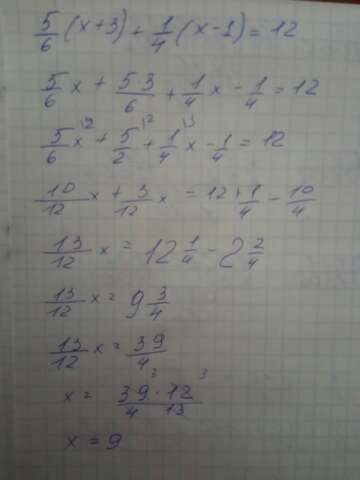 5/6 (x+3) + 1/4 (x-1) = 12
5/6 x + 5·3/6 + 1/4 x - 1/4 = 12
5/6 x + 5/2 + 1/4 x - 1/4 = 12
10/12 x + 3/12 x = 12 + 1/4 - 10/4
13/12 x = 12 1/4 - 2 2/4
13/12 x = 9 3/4
13/12 x = 39/4
x = 39·12/4 13
x = 9